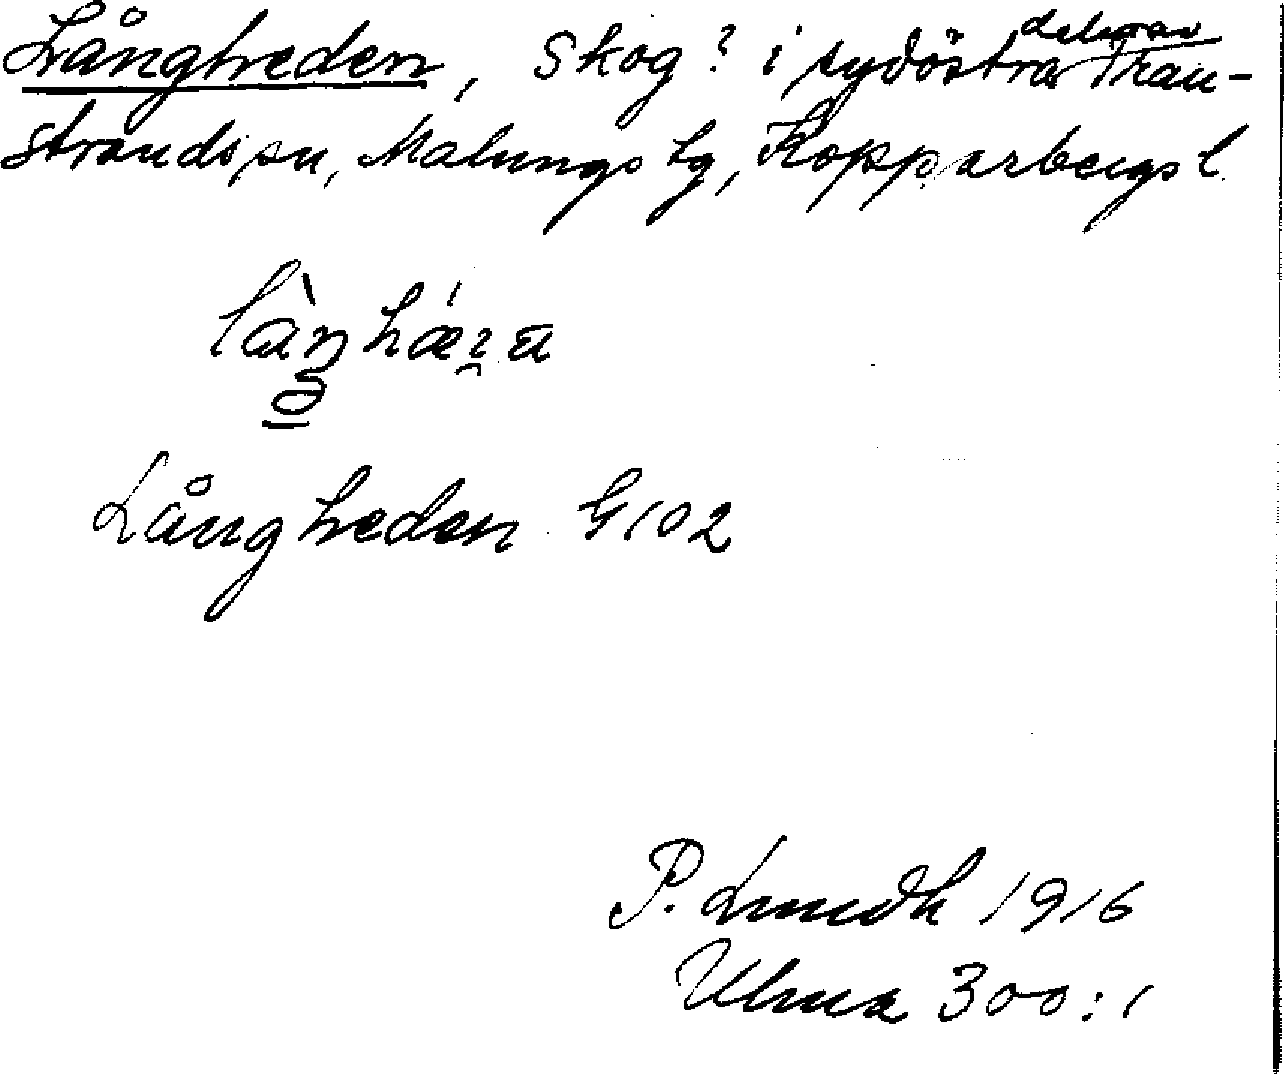 Långheden, Skog? i sydöstra delen av Tran-
strands sn, Malungs tg, Kopparbergs l.
Långheden G102
P. Lundh 1916
Ulma 300:1